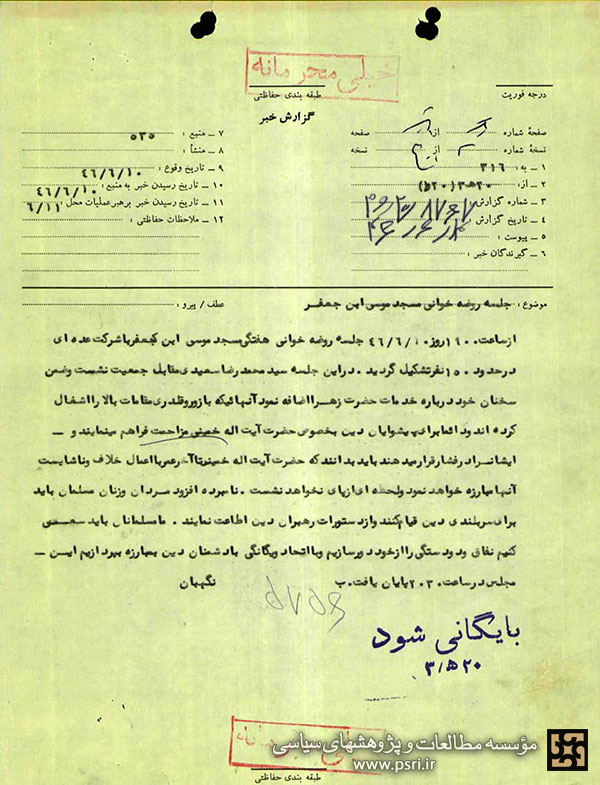 خیلی محرمانه
طبقه بندی حفاظتی
درجه فوریت
گزارش خبر
صفحهٔ شماره از صفحه
نسخهٔ شماره از نسخه
۱ ــ به: ۳۱۶
۲ ــ از: ۲۰ ه‍ ۳ (۲۰ ط)
۳ ــ شماره گزارش
۴ ــ تاریخ گزارش
۵ ــ پیوست :
۶ ــ گیرندگان خبر :
۷ ــ منبع : ۵۳۵
۸ ــ منشأ :
۹ ــ تاریخ وقوع : ۴۶/۶/۱۰
۱۰ ــ تاریخ رسیدن خبر به منبع : ۴۶/۶/۱۰
۱۱ ــ تاریخ رسیدن خبر برهبر عملیات محل : ۶/۱۱
۱۲ ــ ملاحظات حفاظتی :
موضوع : جلسه روضه خوانی مسجد موسی ابن جعفر عطف / پیرو :
از ساعت ۱۹۰۰ روز ۴۶/۶/۱۰ جلسه روضه خوانی هفتگی مسجد موسی ابن جعفر با شرکت عده ای
در حدود ۱۵۰ نفر تشکیل گردید . در این جلسه سید محمد رضا سعیدی مقابل جمعیت نشست و ضمن
سخنان خود در باره خدمات حضرت زهرا اضافه نمود آنهائیکه با زور و قلدری مقامات بالا را اشغال
کرده اند و دائما برای پیشوایان دین بخصوص حضرت آیت اله خمینی مزاحمت فراهم مینمایند و ــ
ایشانرا در فشار قرار میدهند باید بدانند که حضرت آیت اله خمینی تا آخر عمر با اعمال خلاف و ناشایست
آنها مبارزه خواهد نمود و لحظه ای از پای نخواهد نشست . نامبرده افزود مردان و زنان مسلمان باید
برای سربلندی دین قیام کنند و از دستورات رهبران دین اطاعت نمایند . ما مسلمانان باید سعی
کنیم نفاق و دودستگی را از خود دور سازیم و با اتحاد و یگانگی با دشمنان دین بمبارزه بپردازیم این ــ
مجلس در ساعت ۲۰۳۰ پایان یافت. ب نگهبان
بایگانی شود
۲۰ ه‍ ۳
مؤسسه مطالعات و پژوهشهای سیاسی
www.psri.ir
طبقه بندی حفاظتی